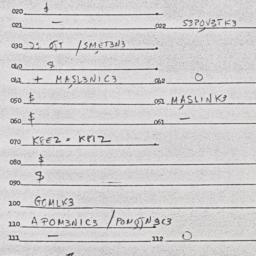 020 $
021 – 022 S3POV3TK3
030 J: OJT / SMET3N3
040 $
041 + MASL3NIC3 042 O
050 $ 051 MASLINK3
060 $ 061 –
070 KFEZ = KFIZ
080 $
090 $
100 GCMLK3
110 APOM3NIC3 / POMOJN3C3
111 – 112 O